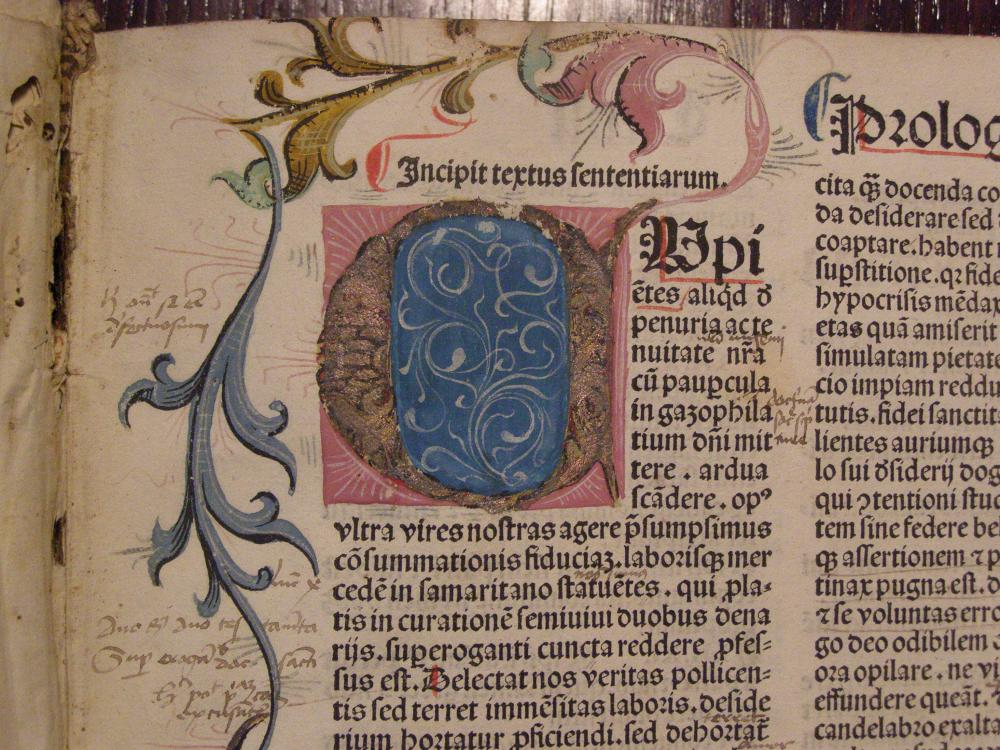 Incipit textus sententiarum.
Cupi
ētes aliq̄d ꝺ
penuria ac te
nuitate nr̄a
cū paup̱cula
in gazophila
tium dn̄i mit
tere . ardua
scādere . opꝰ
vltra vires nostras agere p̄sumpsimus
cōsummationis fiduciaꝫ. laborisqꝫ mer
cedē in samaritano statuētes . qui ꝓla-
tis in curationē semiuiui duobus dena
rijs. superoganti cuncta reddere ꝓfes-
sus est. Delectat nos veritas pollicen-
tis sed terret immēsitas laboris. deside
rium hortatur ꝓficiendi. sed dehortat̄
Prolog
cita q̄ꝫ docenda co
da desiderare sed
coaptare. habent
sup̱stitione. qꝛ fide
hypocrisis mēdax
etas quā amiserit
simulatam pietate
cio impiam reddu
tutis. fidei sanctit
lientes auriumqꝫ
lo sui ꝺsiderij dog
qui ꝯtentioni stu
tem sine federe be
qꝫ assertionem ⁊ p
tinax pugna est. d
⁊ se voluntas erro
go deo odibilem
ora opilare . ne vi
effundere queāt. ⁊
candelabro exalta